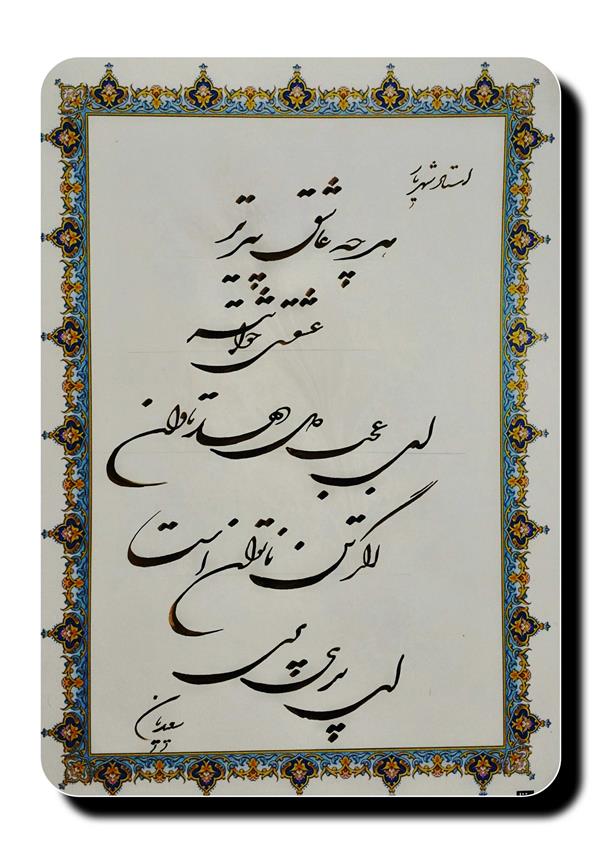 استاد شهریار
هر چه عاشق پیرتر
عشقش جوانتر
ای عجب دل دهد تاوان
اگر تن ناتوان است
ای پری
سعدیان